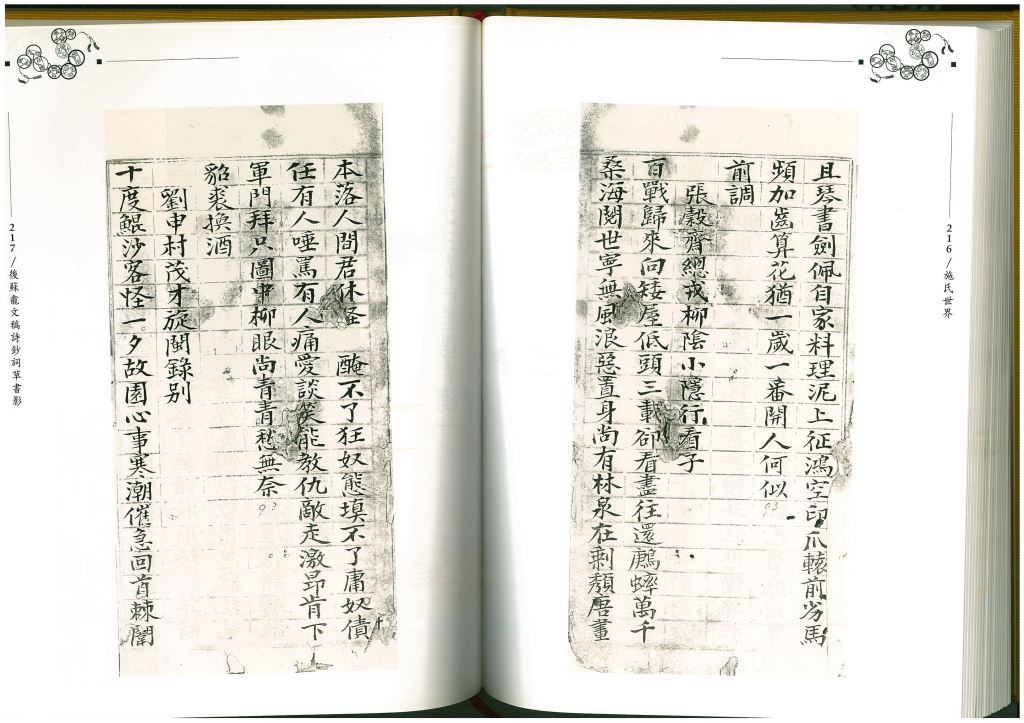 216/施氏世界
且琴書劍佩自家料理泥上征鴻空印爪轅前劣馬
頻加齒算花猶一歲一番開人何似
前調
張穀齋總戎柳陰小隱行看子
百戰歸來向矮屋低頭三載卻看盡往還鷓蟀萬千
桑海閱世寧無風浪惡置身尚有林泉在剩頹唐畫
本落人間君休怪 醃不了狂奴態填不了庸奴債
任有人唾罵有人痛愛談笑能教仇敵走激昂肯下
軍門拜只圖中柳眼尚青青愁無奈
貂裘換酒
劉申村茂才旋閩錄別
十度鯤沙客怪一夕故園心事寒潮催急回首棘闈
217/後蘇龕文稿詩鈔詞草書影